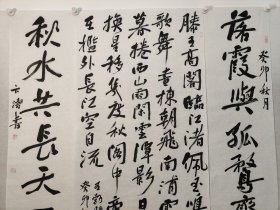 癸卯秋月
落霞與孤鶩
滕王高閣臨江渚佩玉鳴
歌舞畫棟朝飛南浦雲
暮捲西山雨閑雲潭影日
換星移幾度秋閣中
在檻外長江空自流
癸卯
秋水共長天